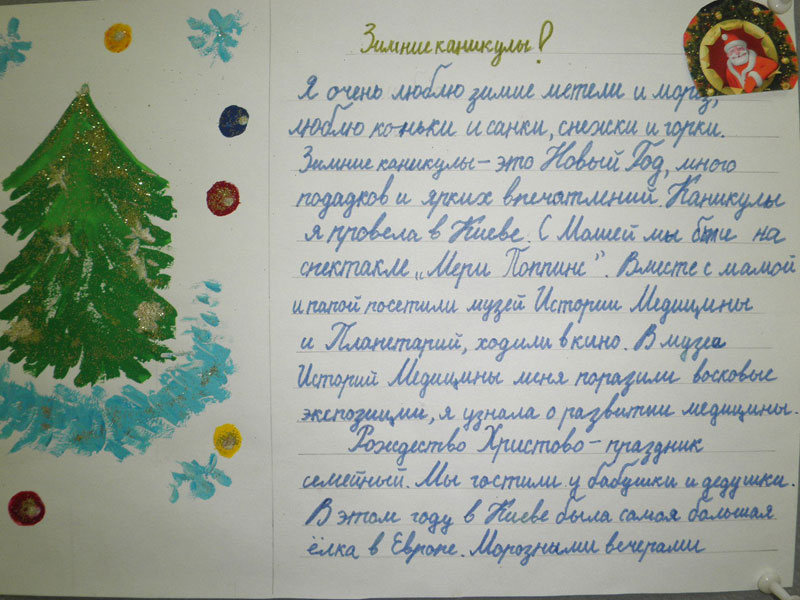 Зимние каникулы!
Я очень люблю зимие метели и мороз,
люблю коньки и санки, снежки и горки.
Зимние каникулы - это Новый Год, много
подадков и ярких впечатлений. Каникулы
я провела в Киеве. С Машей мы были на
спектакле „Мери Поппинс”. Вместе с мамой
и папой посетили музей Истории Медицины
и Планетарий, ходили в кино. В музеа
Историй Медицины меня поразили восковые
экспозиции, я узнала о развитии медицины.
Рождество Христово - праздник
семейный. Мы гостили у бабушки и дедушки.
В этом году в Киеве была самая большая
ёлка в Европе. Морозными вечерами